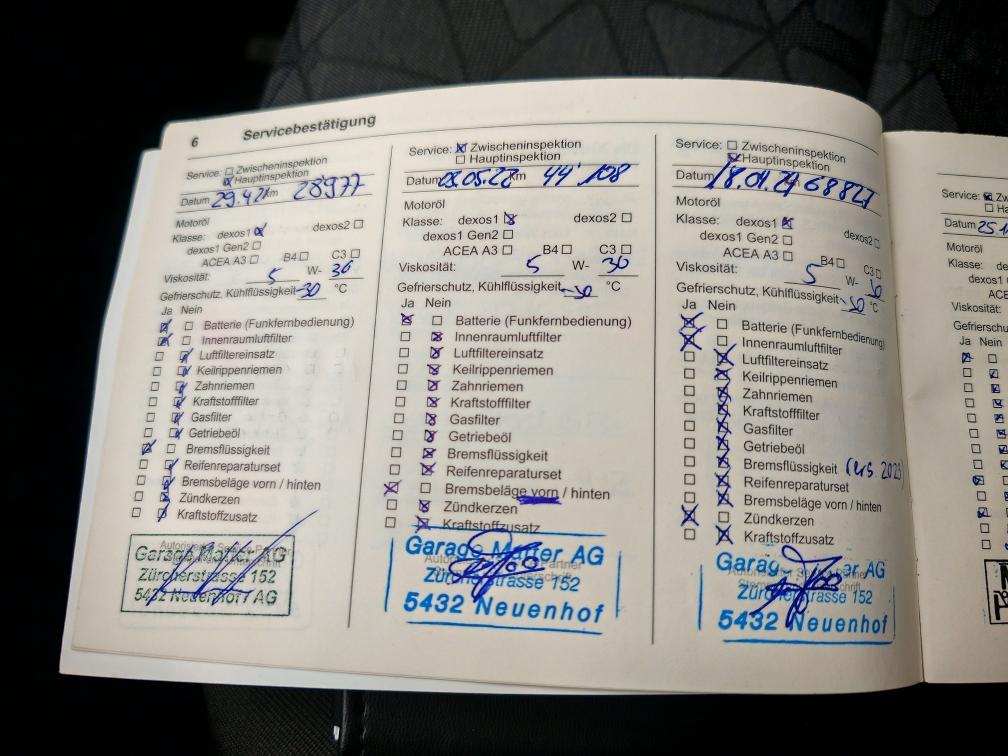 6 Servicebestätigung
Service: Zwischeninspektion
Hauptinspektion
Datum 29.4.21 km 28977
Motoröl
Klasse: dexos1 dexos2
dexos1 Gen2
ACEA A3 B4 C3
Viskosität: 5 W- 30
Gefrierschutz, Kühlflüssigkeit -30 °C
Ja Nein
Batterie (Funkfernbedienung)
Innenraumluftfilter
Luftfiltereinsatz
Keilrippenriemen
Zahnriemen
Kraftstofffilter
Gasfilter
Getriebeöl
Bremsflüssigkeit
Reifenreparaturset
Bremsbeläge vorn / hinten
Zündkerzen
Kraftstoffzusatz
Zürcherstrasse 152
5432 Neuenhof / AG
Service: Zwischeninspektion
Hauptinspektion
Datum 03.05.22 km 44'108
Motoröl
Klasse: dexos1 dexos2
dexos1 Gen2
ACEA A3 B4 C3
Viskosität: 5 W- 30
Gefrierschutz, Kühlflüssigkeit -30 °C
Ja Nein
Batterie (Funkfernbedienung)
Innenraumluftfilter
Luftfiltereinsatz
Keilrippenriemen
Zahnriemen
Kraftstofffilter
Gasfilter
Getriebeöl
Bremsflüssigkeit
Reifenreparaturset
Bremsbeläge vorn / hinten
Zündkerzen
Kraftstoffzusatz
Garage Matter AG
Zürcherstrasse 152
5432 Neuenhof
Service: Zwischeninspektion
Hauptinspektion
Datum 18.01.24 68821
Motoröl
Klasse: dexos1 dexos2
dexos1 Gen2
ACEA A3 B4 C3
Viskosität: 5 W-
Gefrierschutz, Kühlflüssigkeit °C
Ja Nein
Batterie (Funkfernbedienung)
Innenraumluftfilter
Luftfiltereinsatz
Keilrippenriemen
Zahnriemen
Kraftstofffilter
Gasfilter
Getriebeöl
Bremsflüssigkeit
Reifenreparaturset
Bremsbeläge vorn / hinten
Zündkerzen
Kraftstoffzusatz
AG
Zürcherstrasse 152
5432 Neuenhof
Service:
Datum
Motoröl
Klasse:
Viskosität:
Ja Nein